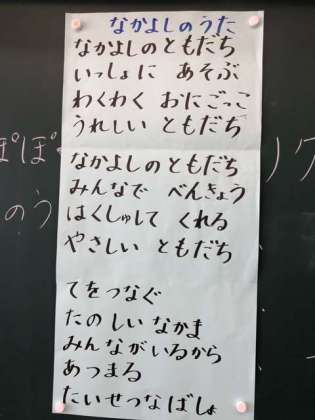 なかよしのうた
なかよしのともだち
いっしょに あそぶ
わくわく おにごっこ
うれしい ともだち
なかよしのともだち
みんなで べんきょう
はくしゅして くれる
やさしい ともだち
てをつなぐ
たのしいなかま
みんながいるから
あつまる
たいせつなばしょ
ぽぽ
のう